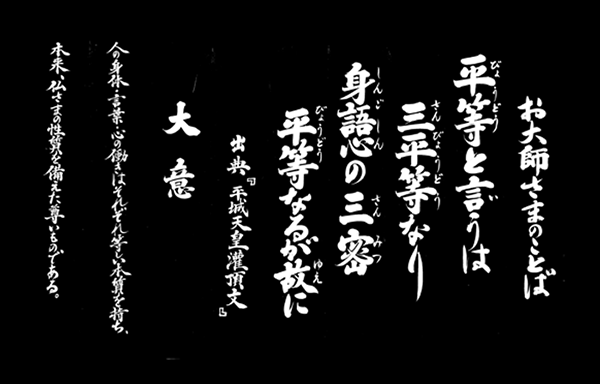 お大師さまのことば
平等と言うは
三平等なり
身語心の三密
平等なるが故に
出典『平城天皇灌頂文』
大意
人の身体、言葉、心の働きはそれぞれ等しい本質を持ち、
本来、仏さまの性質を備えた尊いものである。